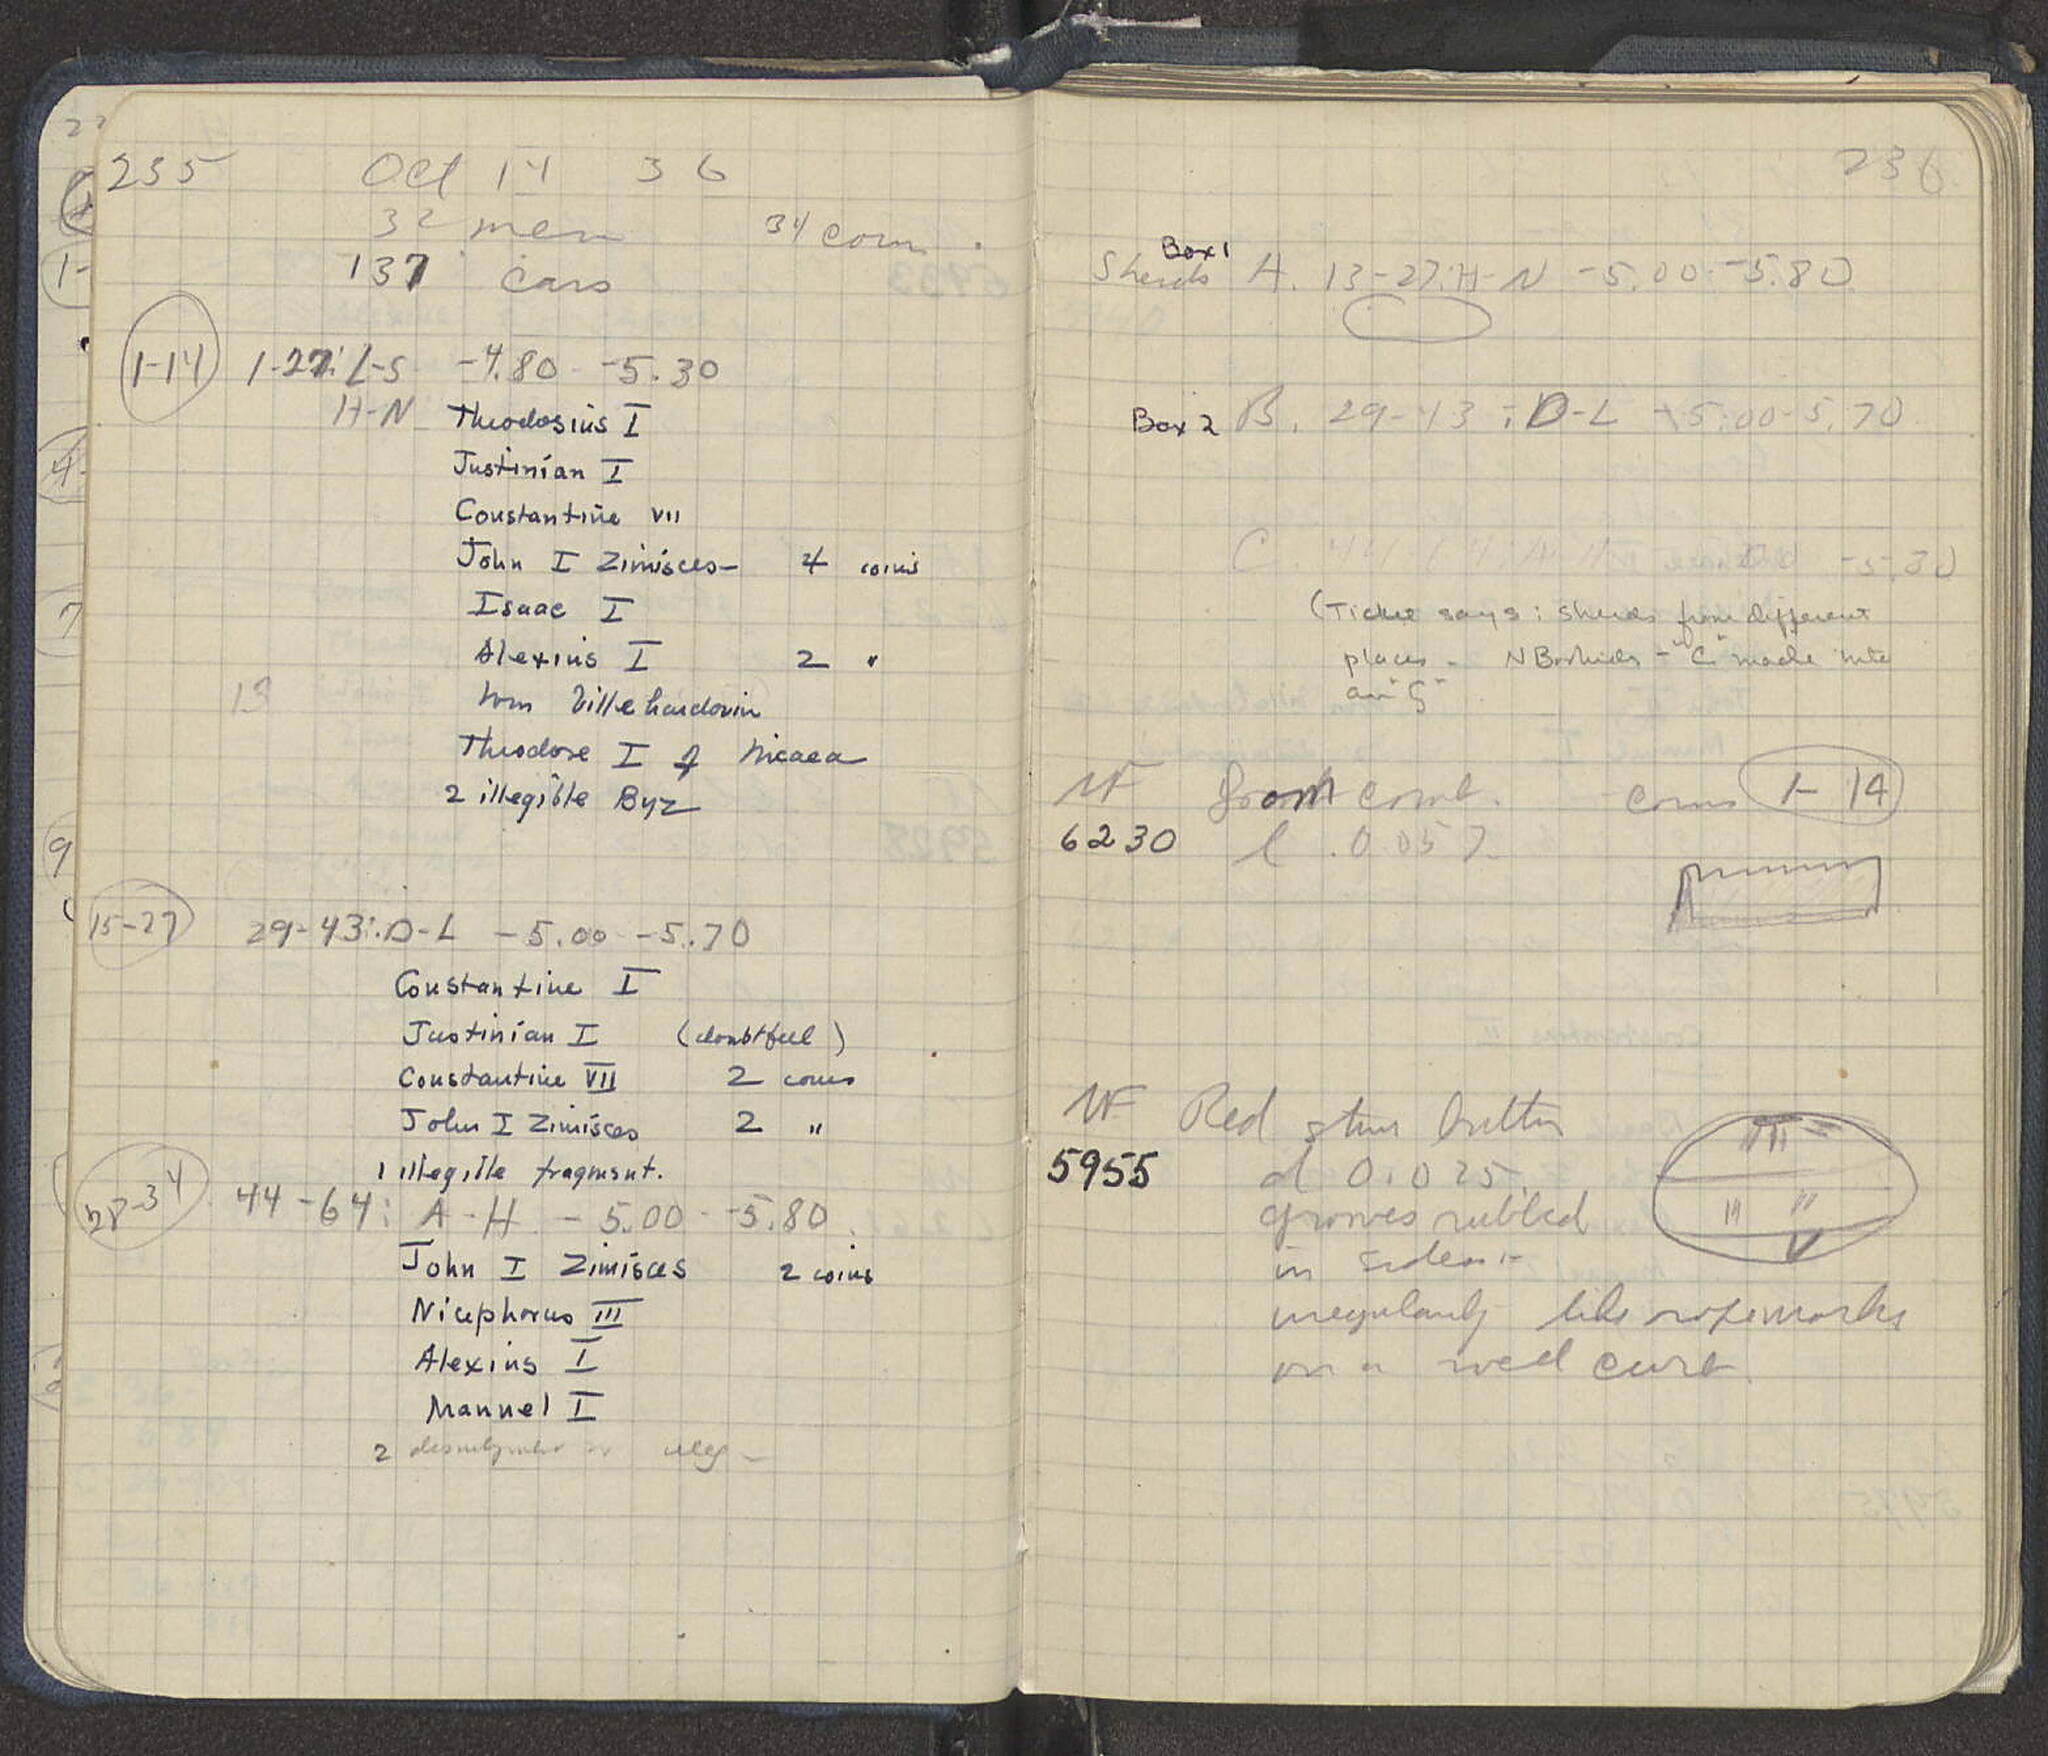 235 Oct 14 36
32 men 34 coins
137 cars
1-14 1-27: L-S -4.80 -5.30
H-N Theodosius I
Justinian I
Constantine VII
John I Zimisces - 4 coins
Isaac I
Alexius I 2 "
13 Wm Villehardouin
Theodore I of Nicaea
2 illegible Byz
15-27 29-43: D-L -5.00 -5.70
Constantine I
Justinian I (doubtful)
Constantine VII 2 coins
John I Zimisces 2 "
1 illegible fragment.
28-34 44-64: A-H -5.00 -5.80
John I Zimisces 2 coins
Nicephorus III
Alexius I
Manuel I
2
236
Box 1
Sherds A. 13-27: H-N -5.00 -5.80
Box 2 B. 29-43: D-L -5.00-5.70
C -5.30
(Ticket says: sherds from different
places - NB - "C" made into
an "G"
NF from comb. coins 1-14
6230 l. 0.057
NF Red stone button
5955 d 0.025
grooves rubbed
in sides
irregularly like rope marks
on a well curb